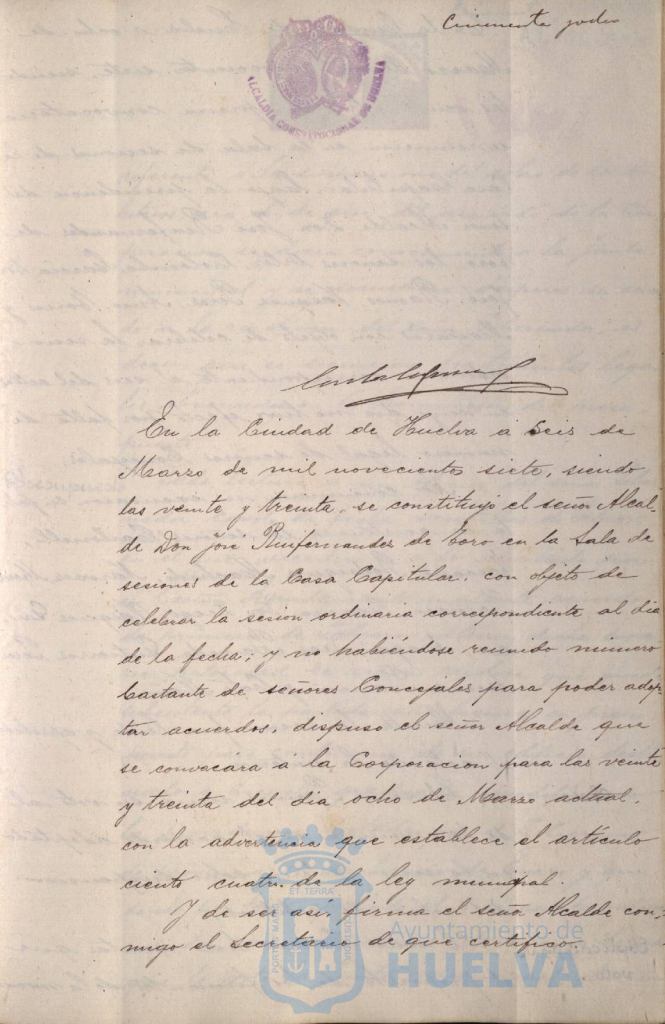 Cincuenta y dos
ALCALDIA CONSTITUCIONAL DE HUELVA
En la Ciudad de Huelva á seis de
Marzo de mil noveciento siete, siendo
las veinte y treinta, se constituyó el señor Alcal-
de Don José Ruifernandez de Toro en la Sala de
sesiones de la Casa Capitular, con objeto de
celebrar la sesion ordinaria correspondiente al dia
de la fecha; y no habiéndose reunido número
bastante de señores Concejales para poder adop-
tar acuerdos, dispuso el señor Alcalde que
se convocára á la Corporacion para las veinte
y treinta del dia ocho de Marzo actual,
con la advertencia que establece el artículo
ciento cuatro de la ley municipal.
Y de ser así, firma el señor Alcalde con-
migo el Secretario de que certifico.
PORTUS MARIS ET TERRÆ CUSTODIA
Ayuntamiento de
HUELVA